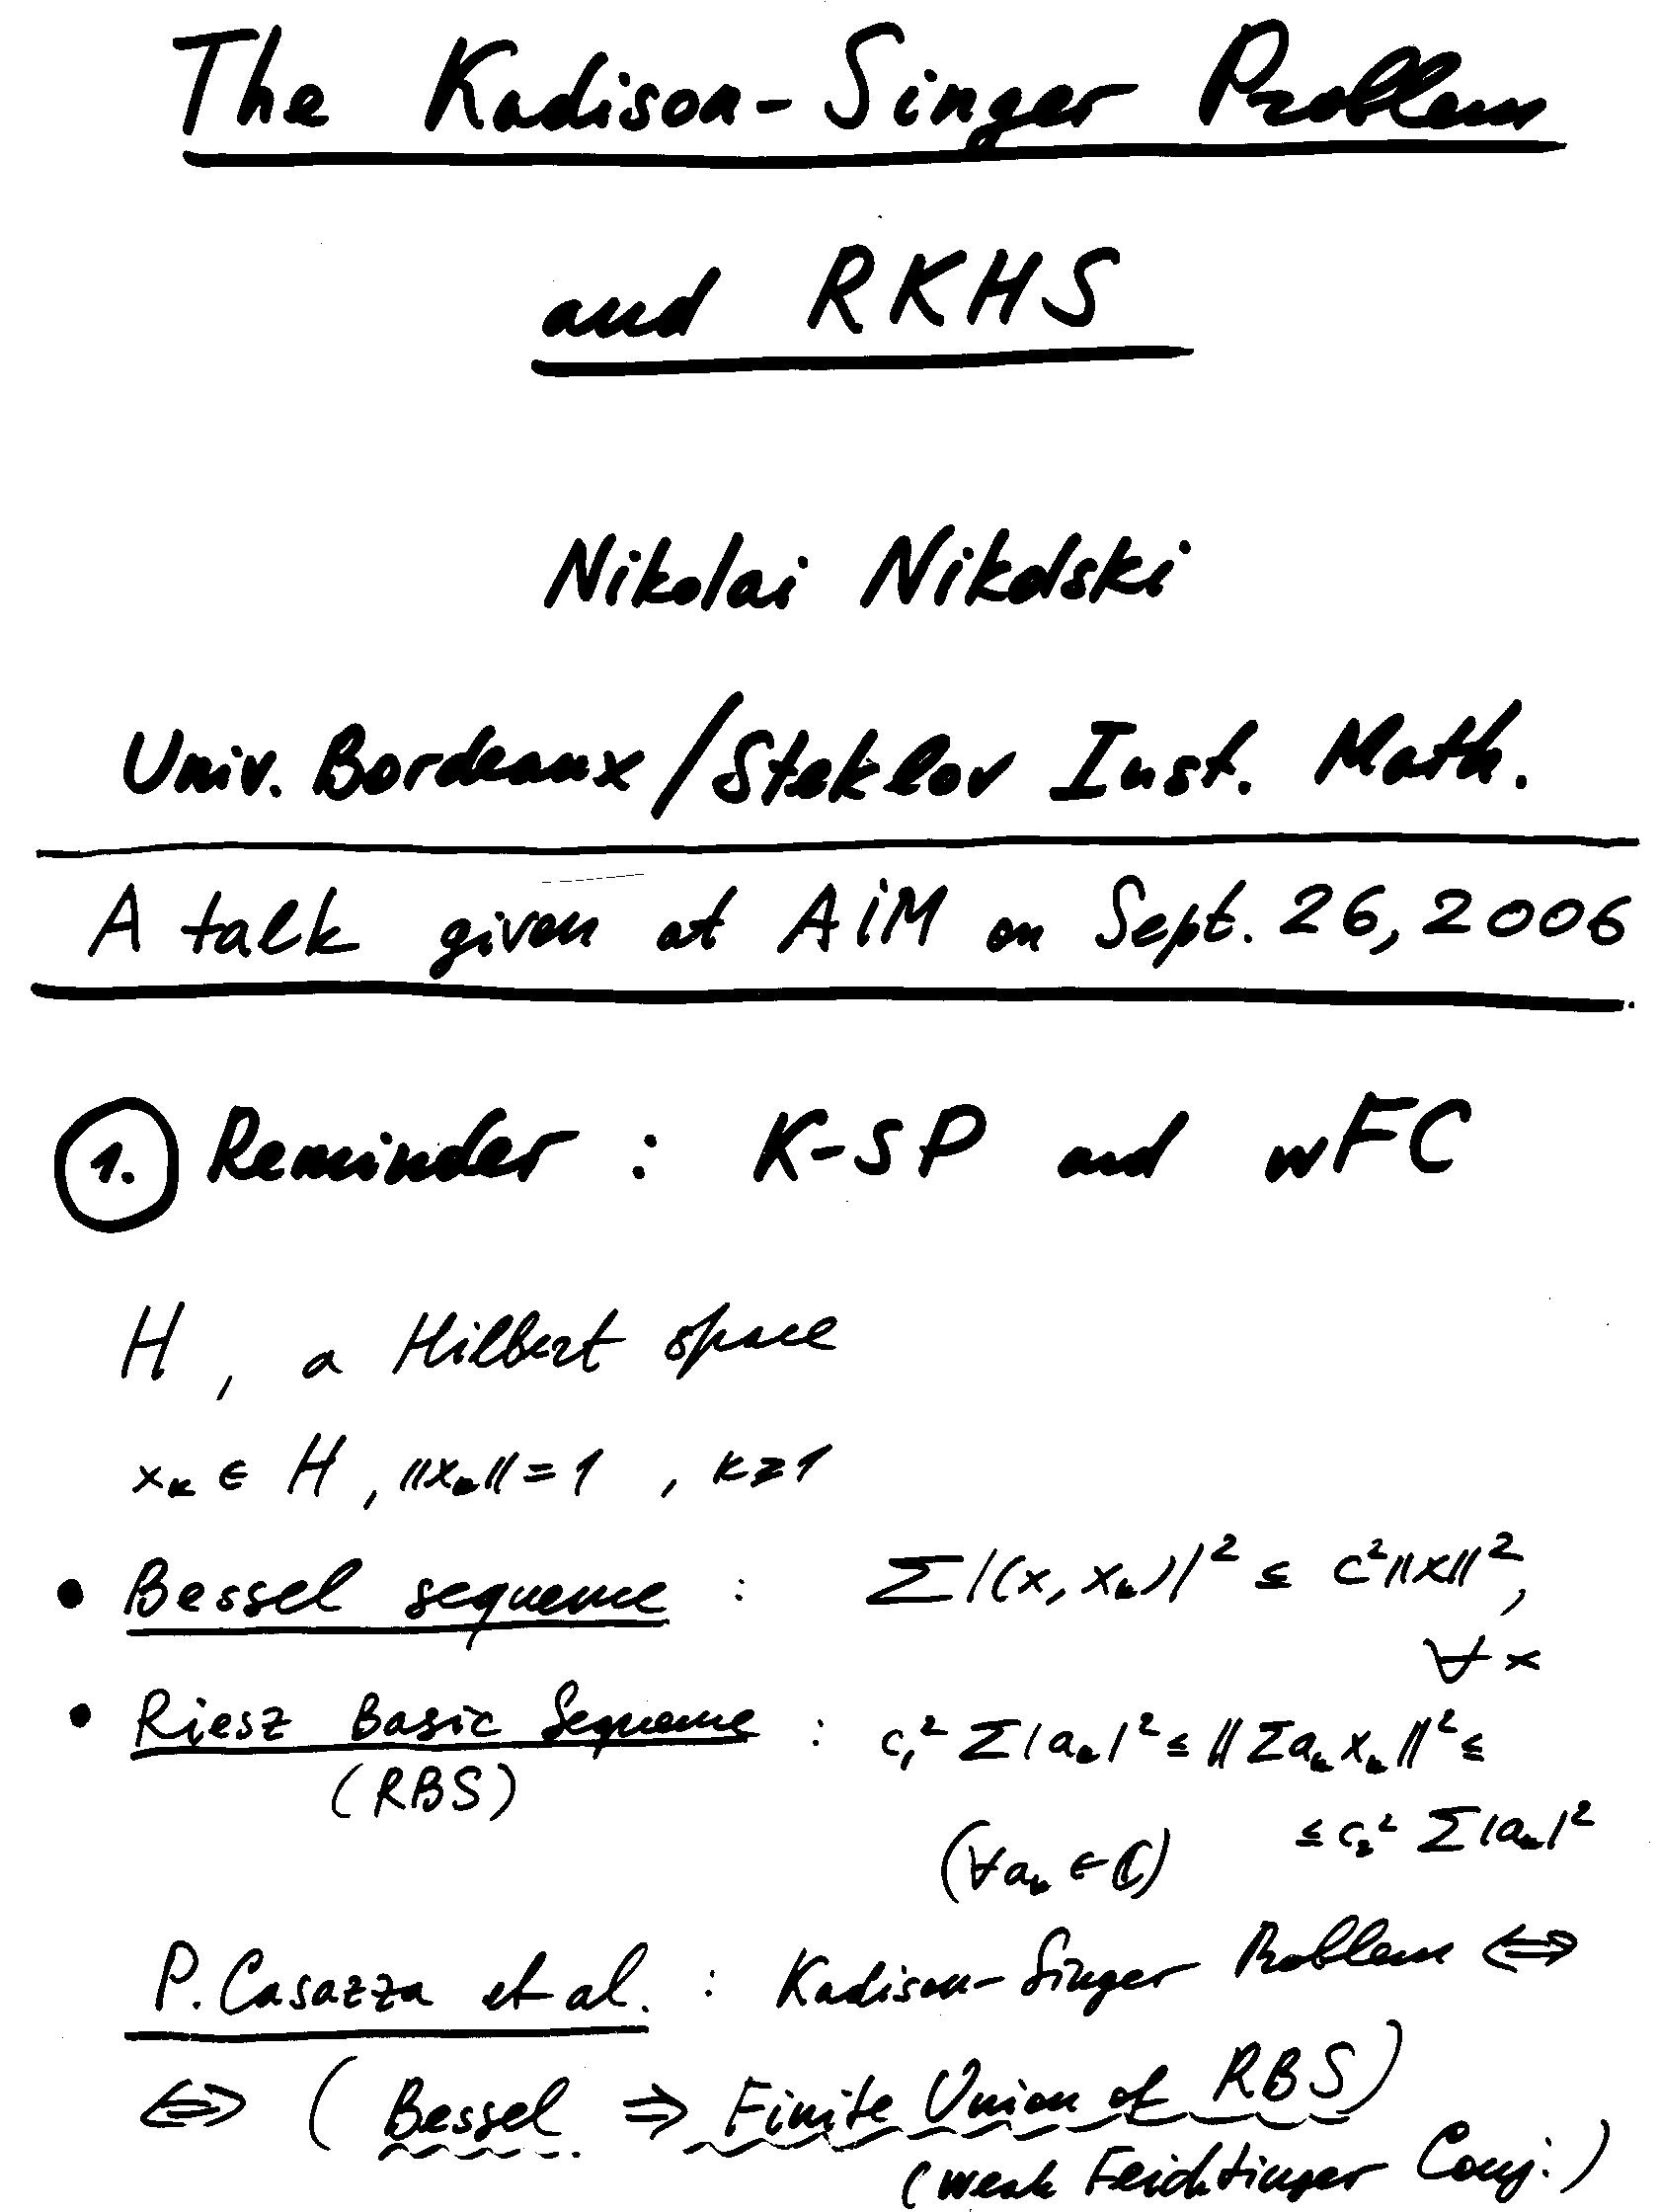 The Kadison-Singer Problem
and RKHS
Nikolai Nikolski
Univ. Bordeaux/Steklov Inst. Math.
A talk given at AiM on Sept. 26, 2006
1. Reminder : K-SP and wFC
H, a Hilbert space
x_k ∈ H, ||x_k|| = 1, k ≥ 1
• Bessel sequence : Σ|(x, x_k)|² ≤ c²||x||²,
∀ x
• Riesz Basic Sequence : c₁² Σ|a_k|² ≤ ||Σ a_k x_k||² ≤
(RBS)
≤ c₂² Σ|a_k|²
(∀ a_k ∈ ℂ)
P. Casazza et al. : Kadison-Singer Problem ⇔
⇔ (Bessel ⇒ Finite Union of RBS)
(weak Feichtinger Conj.)